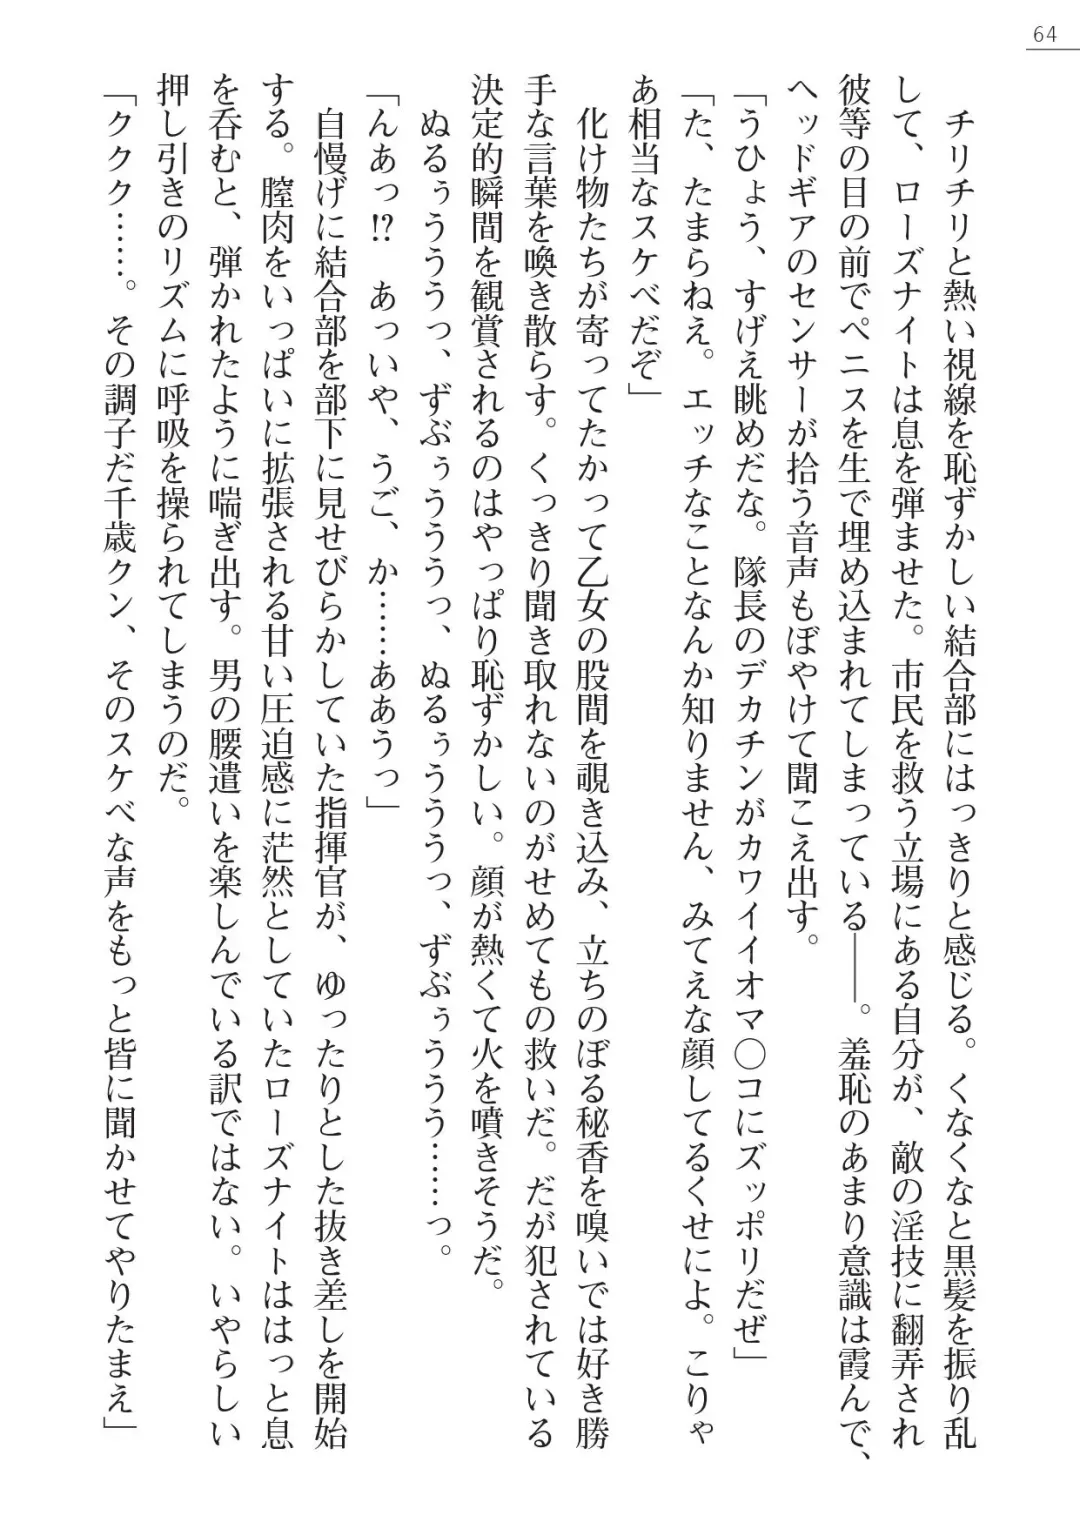 64
チリチリと熱い視線を恥ずかしい結合部にはっきりと感じる。くなくなと黒髪を振り乱
して、ローズナイトは息を弾ませた。市民を救う立場にある自分が、敵の淫技に翻弄され
彼等の目の前でペニスを生で埋め込まれてしまっている――。羞恥のあまり意識は霞んで、
ヘッドギアのセンサーが拾う音声もぼやけて聞こえ出す。
「うひょう、すげえ眺めだな。隊長のデカチンがカワイイオマ〇コにズッポリだぜ」
「た、たまらねえ。エッチなことなんか知りません、みてえな顔してるくせによ。こりゃ
あ相当なスケベだぞ」
化け物たちが寄ってたかって乙女の股間を覗き込み、立ちのぼる秘香を嗅いでは好き勝
手な言葉を喚き散らす。くっきり聞き取れないのがせめてもの救いだ。だが犯されている
決定的瞬間を観賞されるのはやっぱり恥ずかしい。顔が熱くて火を噴きそうだ。
ぬるぅうううっ、ずぶぅうううっ、ぬるぅうううっ、ずぶぅううう……っ。
「んあっ!?　あっいや、うご、か……ああうっ」
自慢げに結合部を部下に見せびらかしていた指揮官が、ゆったりとした抜き差しを開始
する。膣肉をいっぱいに拡張される甘い圧迫感に茫然としていたローズナイトははっと息
を呑むと、弾かれたように喘ぎ出す。男の腰遣いを楽しんでいる訳ではない。いやらしい
押し引きのリズムに呼吸を操られてしまうのだ。
「ククク……。その調子だ千歳クン、そのスケベな声をもっと皆に聞かせてやりたまえ」